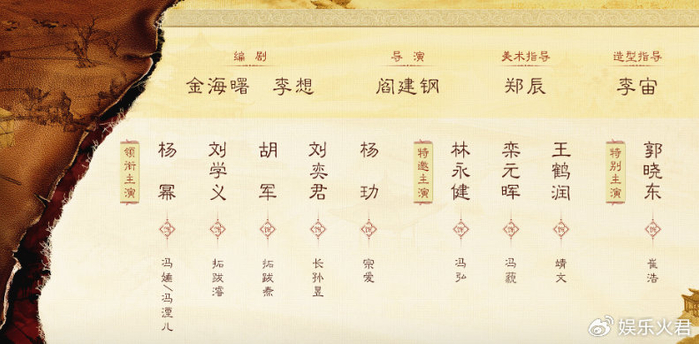 编剧
金海曙 李想
导演
阎建钢
美术指导
郑辰
造型指导
李宙
领衔主演
杨幂
冯媎/冯湮儿
刘学义
拓跋濬
胡军
拓跋焘
刘奕君
长孙昱
杨玏
宗爱
特邀主演
林永健
冯弘
栾元晖
冯藐
王鹤润
靖文
特别主演
郭晓东
崔浩
娱乐火君